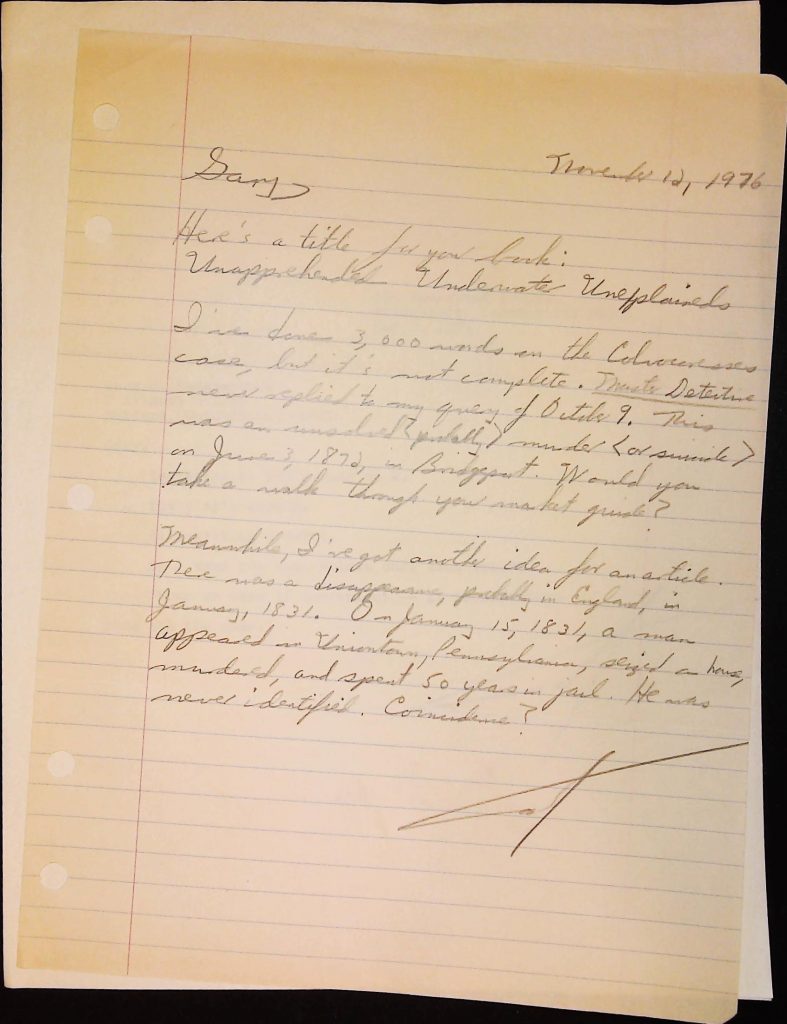 November 12, 1976
Gary
Here's a title for your book:
Unapprehended Underwater Unexplaineds
I've done 3,000 words on the Colvocoresses
case, but it's not complete. Master Detective
never replied to my query of October 9. This
was an unsolved <probably> murder <or suicide>
on June 3, 1872, in Bridgeport. Would you
take a walk through your market guide?
Meanwhile, I've got another idea for an article.
There was a disappearance, probably in England, in
January, 1831. On January 15, 1831, a man
appeared in Uniontown, Pennsylvania, seized a house,
murdered, and spent 50 years in jail. He was
never identified. Coincidence?